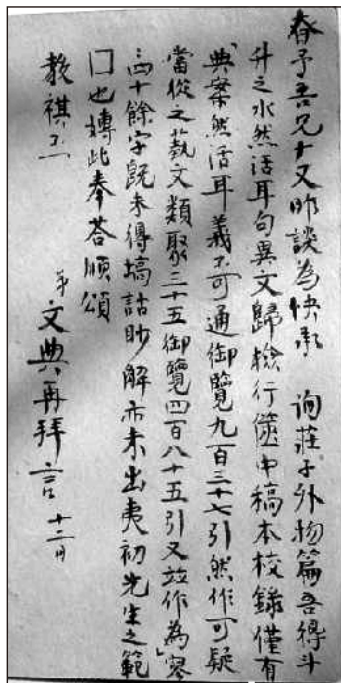 春予吾兄卄又昨談為快承 询莊子外物篇吾得斗
升之水然活耳句異文歸檢行篋中稿本校錄僅有
「典案然活耳義不可通御覽九百三十七引然作可疑
當從之藝文類聚三十五御覽四百八十五引又竝作為」寥
寥四十餘字既未得塙詁眇解亦未出夷初先生之範
囗也摶此奉荅順頌
教祺不一
弟文典再拜言 十二月